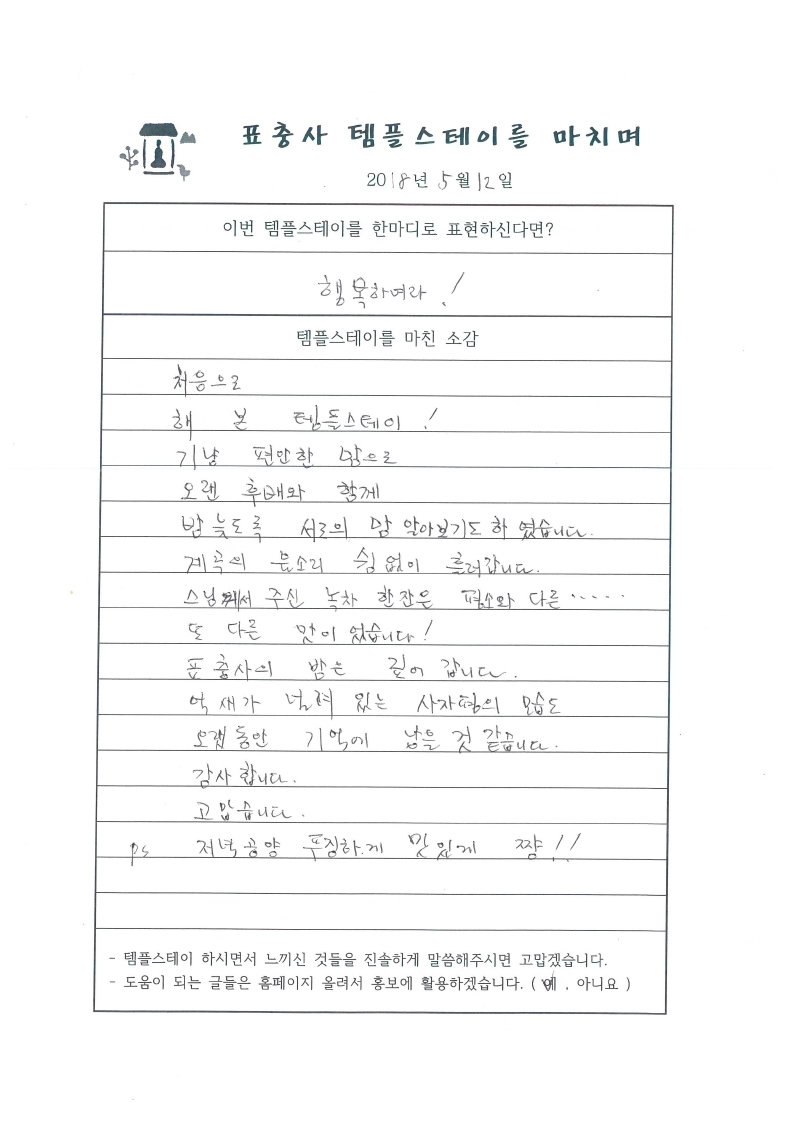 표충사 템플스테이를 마치며
2018년 5월 12일
이번 템플스테이를 한마디로 표현하신다면?
행복하여라 !
템플스테이를 마친 소감
처음으로
해 본 템플스테이 !
기냥 편안한 맘으로
오랜 후배와 함께
밤 늦도록 서로의 맘 알아보기도 하였습니다.
계곡의 물소리 쉼 없이 흘러갑니다.
스님께서 주신 녹차 한잔은 평소와 다른 ‥‥‥
또 다른 맛이 었습니다!
표충사의 밤은 깊어 갑니다.
억새가 널려 있는 사자평의 모습도
오랩동안 기억에 남을 것 같습니다.
감사 합니다.
고맙습니다.
ps 저녁공양 푸짐하게 맛있게 쨩!!
- 템플스테이 하시면서 느끼신 것들을 진솔하게 말씀해주시면 고맙겠습니다.
- 도움이 되는 글들은 홈페이지 올려서 홍보에 활용하겠습니다. ( 예 , 아니요 )